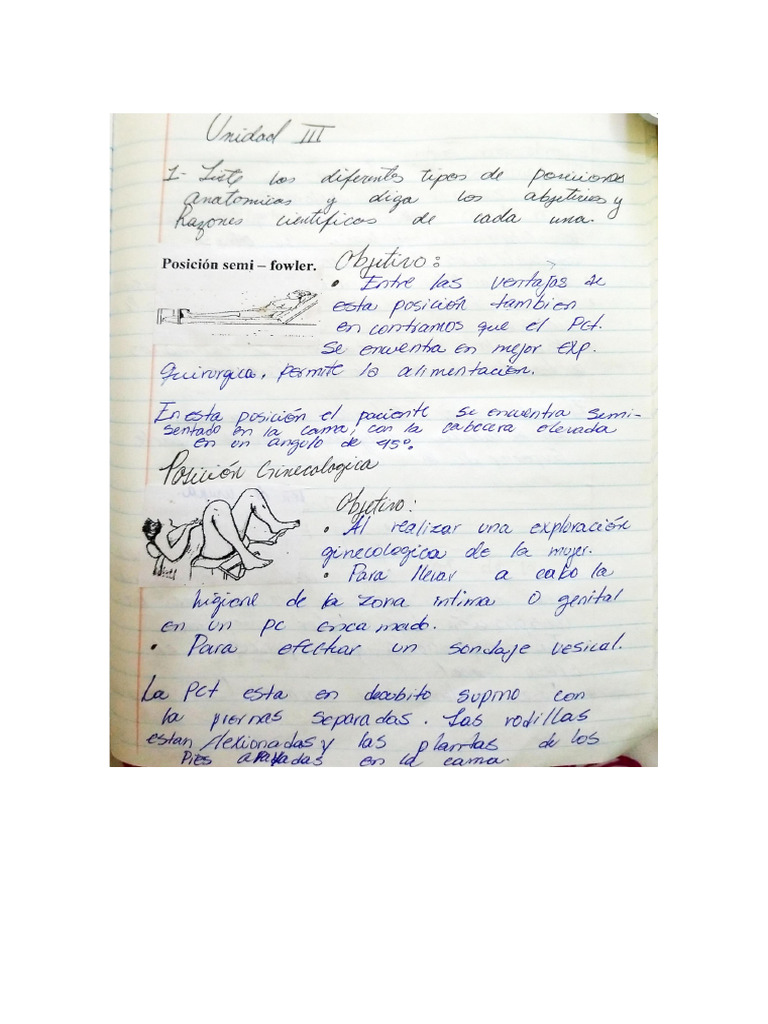 Unidad III
1- Liste los diferentes tipos de posiciones
anatomicas y diga los objetivos y
Razones cientificas de cada una.
Posición semi – fowler. Objetivo:
• Entre las ventajas de
esta posición tambien
encontramos que el Pct.
se encuentra en mejor exp.
quirurgica, permite la alimentación.
En esta posición el paciente se encuentra semi-
sentado en la cama, con la cabecera elevada
en un angulo de 45º.
Posición Ginecologica
Objetivo:
• Al realizar una exploración
ginecologica de la mujer.
• Para llevar a cabo la
higiene de la zona intima o genital
en un pc encamado.
• Para efectuar un sondaje vesical.
La Pct esta en decubito supino con
la piernas separadas. Las rodillas
estan flexionadas y las plantas de los
Pies apoyadas en la cama.